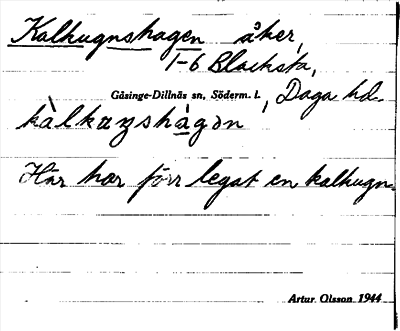 Kalkugnshagen åker,
1-6 Blacksta,
Gåsinge-Dillnäs sn, Söderm. l., Daga hd.
kàlkuŋshàgǝn
Här har förr legat en kalkugn.
Artur Olsson 1944